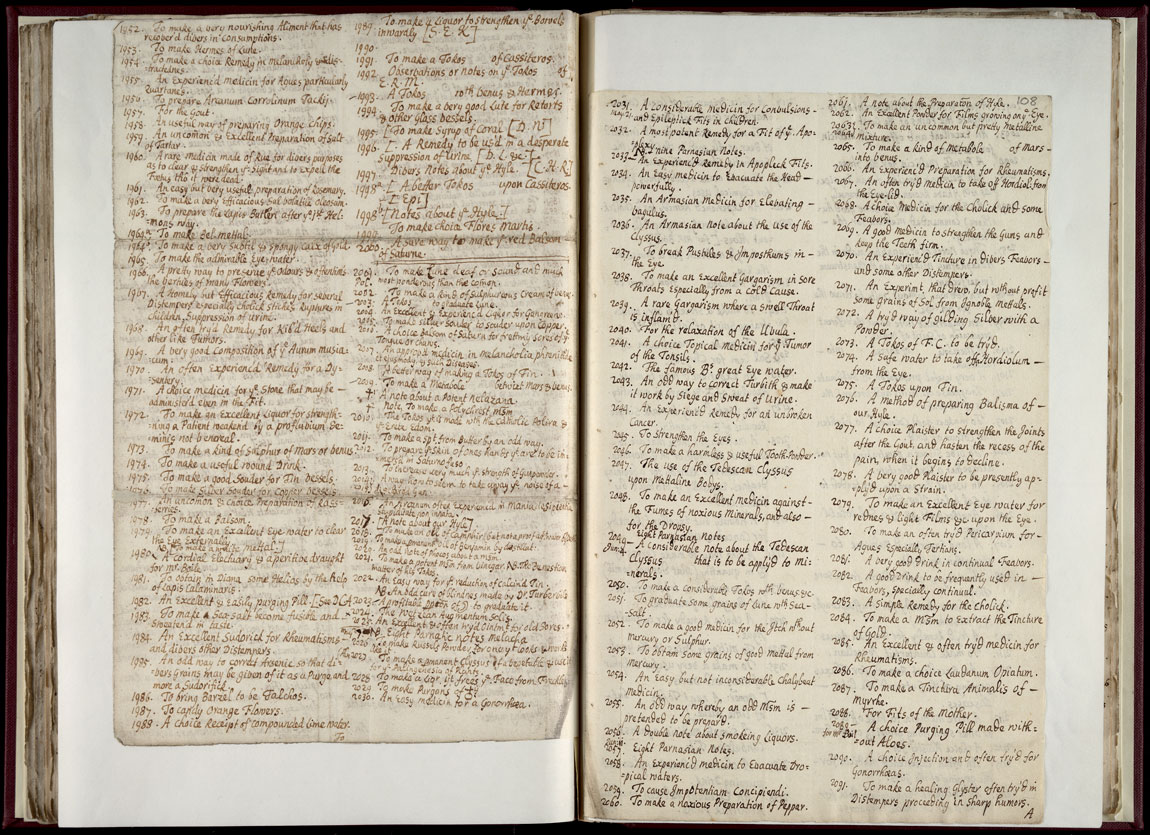 1952. To make a very nourishing Aliment that has
recover'd divers in Consumptions.
1953. To make Hermes of Lune.
1954. To make a choice Remedy in melancholy & dis-
tractednes.
1955. An Experienc'd medicin for Agues particularly
Quartanes.
1956. To prepare Arcanum Corrolinum Tackij.
1957. For the Gout.
1958. An useful way of preparing Orange Chips.
1959. An uncommon & Excellent Preparation of Salt
of Tartar.
1960. A rare medicin made of Rue for divers purposes
as to clear & strengthen ye. Sight and to Expell the
Fœtus tho it were dead.
1961. An easy but very useful preparation of Rosemary.
1962. To make a very efficacious Sal volatile Oleosum.
1963. To prepare the Lapis Butleri after ye. Hel-
monts way.
1964a. To make Bel-mettal.
1964b. To make a very subtle & spongy calx of gold.
1965. To make the admirable Eye water.
1966. A pretty way to preserve ye. Colours & oftentimes
the Vertues of many Flowers.
1967. A homely but Efficacious Remedy for several
Distempers especially cholick Stiches Ruptures in
Children, Suppression of Urine.
1968. An often try'd Remedy for Kib'd Heels and
other like Tumors.
1969. A very good Composition of ye. Aurum musia-
cum
1970. An often Experienc'd Remedy for a Dy-
sentery.
1971. A choice medicin for ye. Stone that may be
administer'd even in the Fit.
1972. To make an Excellent Liquor for strength-
ning a Patient weakend by a profluvium Se-
minis not venereal.
1973. To make a kind of Sulphur of Mars or Venus
1974. To make a useful wound Drink.
1975. To make a good Souder for Tin vessels.
1976. To make Silver Souder for Copper vessels.
1977. An uncommon & choice Preparation of Can-
1978. To make a Paison.
1979. To make an Excellent Eye-water to clear
the Eye Externally.
1980. To make a white mettal.
A Cordial Electuary & aperitive draught
for mr. Boile
1981. To obtain in Diana some Helios by the help
of Lapis Calaminaris.
1982. An Excellent & Easily purging Pill.
1983. To make a Sea-Salt become fusible and
sweetend in taste.
1984. An Excellent Sudorick for Rheumatisms
and divers other Distempers.
1985. An odd way to correct Arsenic so that di-
vers Grains may be given of it as a Purge and
more a Sudorifick.
1986. To bring Bezeel to be Talchos.
1987. To candy Orange Flowers.
1988. A choice Receipt of Compounded Lime water.
To
1989. To make ye Liquor to strengthen ye. Bowels
inwardly [S. E. K]
1990.
1991. To make a Tokos of Cassiteros.
1992. Observations or notes on ye Tokos of
E. R. M.
1993. A Tokos with Venus & Hermes.
1994. To make a very good Lute for Retorts
& other glass vessels.
1995. [To make Syrup of Coral [D. W]
1996. [A Remedy to be used in a desperate
Suppression of Urine, [D. L. &c.
1997. Divers Notes about ye Hyle. [C. H. R]
1998a [A better Tokos upon Cassiteros.
[Epi.]
1998b [Notes about ye Hyle.]
1999. To make choice Flores Martis.
2000. A sure way to make ye red Balsom
of Saturne.
2001. To make Lune deaf or sound and much
more ponderous than the common.
2002. To make a kind of Sulphureous Cream of
2003. A Tokos to graduate Lune.
2004. An Excellent & Experienc'd Liquor for Gangreens.
2005. To make Silver Souder to souder upon Copper.
2006. A choice Cream of Saturn for fretting Sores of ye
Tongue or Chaws.
2007. An approv'd medicin in melancholia phrenitide
& such Diseases
2008. A better way of making a Tokos of Tin.
2009. To make a Metabole betwixt Mars & Venus.
A note about a Potent Nelazana
note, To make a Polychrest msm
2010. The Tokos yt is made with the Catholic Polira &
crude Edom.
2011. To make a spt from Butter by an odd way.
2012. To prepare ye. skin of ones Hands yt are to be im-
mers'd in Saturno fuso
2013. To increase very much ye. strength of Gunpowder.
2014. A way how to stern to take away ye. noise of a
2015. discharg'd gun.
2016. An Arcanum often Experienc'd in Mania
2017 [A note about our Hyle]
2018. To make an oil of Camphire (but not a proof at
2019. To make a mineral oil of Benjamin by distillat:
2020. An odd note of Phocos about a msm.
2021. To make a potent msm from Vinegar. NB. The Depuration
2022. An Easy way for ye. reduction of calcin'd Tin.
NB. An odd cure of Blindnes made by Dr. Turberville
2023. A profitable porcn of D to graduate it.
2024. The Noscian Augmentum Solis.
2025. An Excellent & often try'd Ointmt. for old Sores.
2026. Eight Parnasic notes
2027. To make a permanent Clyssus of a vegetable
2028. To make a Liqr. yt frees ye Face from Freckles
2029. To make Purgans of
2030. An easy medicin for a Gonorrhœa.
108
2031. A considerable medicin for Convulsions
and Epileptick Fits in Children.
2032. A most potent Remedy for a Fit of ye. Apo-
plexy.
nine Parnasian Notes.
2033. An Experienc'd Remedy in Apopleck Fits.
2034. An Easy medicin to Evacuate the Head
powerfully.
2035. An Armasian medicin for Elevating
bagulus.
2036. An Armasian note about the use of the
Clyssus.
2037. To break Pustules & Imposthums in
the Eye.
2038. To make an Excellent Gargarism in sore
Throats especially from a cold cause.
2039. A rare Gargarism where a swell'd Throat
is inflam'd.
2040. For the relaxation of the Uvula.
2041. A choice Topical medicin for ye Tumor
of the Tonsils.
2042. The famous Bs. great Eye water.
2043. An odd way to correct Turbith & make
it work by Siege and Sweat of Urine.
2044. An Experienc'd Remedy for an unbroken
Cancer.
2045. To strengthen the Eyes.
2046. To make a harmless & useful Tooth-Powder.
2047. The use of the Tedescan Clyssus
upon Mettaline Bobys.
2048. To make an Excellent medicin against
the Fumes of noxious Minerals, and also
for the Dropsy.
Eight Parnasian notes
2049. A considerable note about the Tedescan
Clyssus that is to be apply'd to mi-
nerals.
2050. To make a considerable Tokos with Venus &c.
2051. To graduate some grains of Lune with Sea
-Salt.
2052. To make a good medicin for the Itch without
Mercury or Sulphur.
2053. To obtain some grains of good mettal from
Mercury.
2054. An Easy but not inconsiderable Chalybeat
medicin.
2055. An odd way whereby an old Msm is
pretended to be prepar'd.
2056. A double note about smoking Liquors.
2057. Eight Parnasian Notes.
2058. An Experienc'd medicin to Evacuate Dro-
pical waters.
2059. To cause Impotentiam Concipiendi.
2060. To make a noxious Preparation of Peppar.
2061. A note about the Preparation of Hyle.
2062. An Excellent Powder for Films growing on ye. Eye.
2063. To make an uncommon but pretty Metalline
2064. mixture.
2065. To make a kind of Metabole of Mars
into Venus.
2066. An Experienc'd Preparation for Rheumatisms.
2067. An often try'd Medicin to take off Hordiols from
the Eye-lid.
2068. A choice Medicin for the Cholick and some
Feavors.
2069. A good medicin to strengthen the Gums and
keep the Teeth firm.
2070. An Experienc'd Tincture in divers Feavors
and some other Distempers.
2071. An Experimt. that drew, but without profit
some grains of Sol from Ignoble mettals.
2072. A try'd way of gilding Silver with a
Powder.
2073. A Tokos of F. C. to be try'd.
2074. A safe water to take off Hordiolum
from the Eye.
2075. A Tokos upon Tin.
2076. A method of preparing Balisma of
our Hyle.
2077. A choice Plaister to strengthen the Joints
after the Gout, and hasten the recess of the
pain, when it begins to decline.
2078. A very good Plaister to be presently ap-
ply'd upon a Strain.
2079. To make an Excellent Eye water for
rednes & light Films &c upon the Eye.
2080. To make an often try'd Pericarpium for
Agues Especially, Tertians.
2081. A very good Drink in continual Feavors.
2082. A good Drink to be frequently used in
Feavors, specially continual.
2083. A simple Remedy for the Cholick.
2084. To make a Msm to Extract the Tincture
of Gold.
2085. An Excellent & often try'd medicin for
Rheumatisms.
2086. To make a choice Laudanum Opiatum.
2087. To make a Tinctura Animalis of
Myrrhe.
2088. For Fits of the Mother.
2089. A choice Purging Pill made with-
out Aloes.
2090. A choice Injection and often try'd for
Gonorrhœas.
2091. To make a healing Glyster often try'd in
Distempers proceeding in sharp humors.
A